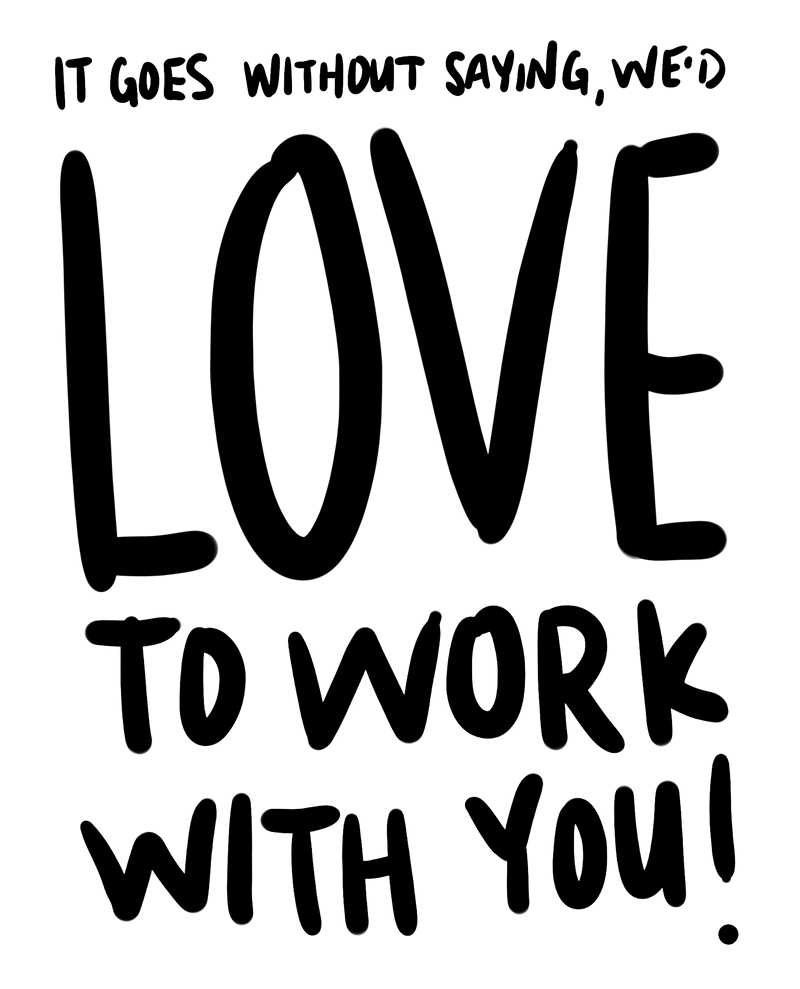 IT GOES WITHOUT SAYING, WE'D
LOVE
TO WORK
WITH YOU!